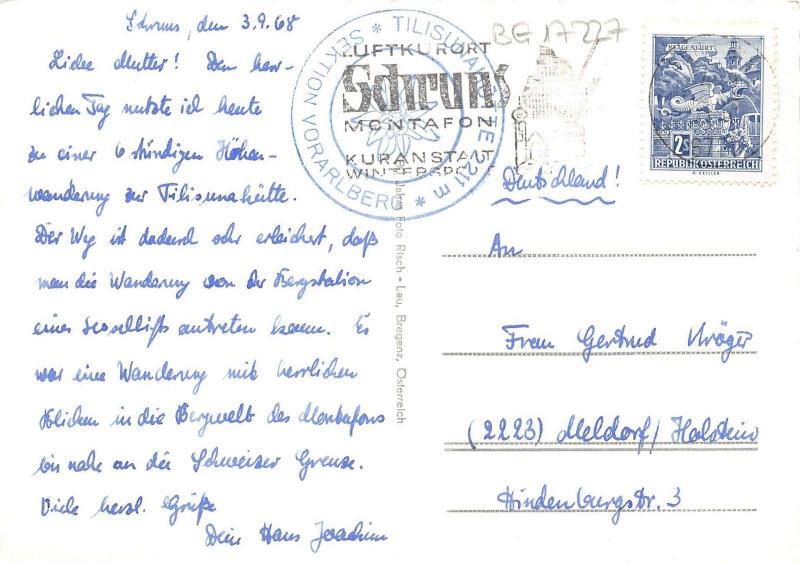 Schruns, den 3.9.68
Liebe Mutter! Den herr-
lichen Tag nutzte ich heute
zu einer 6 stündigen Höhen-
wanderung zur Tilisunahütte.
Der Weg ist dadurch sehr erleichert, daß
man die Wanderung von der Bergstation
eines Sessellifts antreten kann. Es
war eine Wanderung mit herrlichen
Blicken in die Bergwelt des Montafons
bis nahe an die Schweizer Grenze.
Viele herzl. Grüße
Dein Hans Joachim
TILISUNAHÜTTE 2211 m * SEKTION VORARLBERG *
LUFTKURORT
Schruns
MONTAFON
KURANSTALT
WINTERSPORT
BG 17227
KLAGENFURT
2S
REPUBLIK ÖSTERREICH
Foto Risch-Lau, Bregenz, Österreich
Deutschland!
An
Frau Gertrud Kröger
(2223) Meldorf/Holstein
Hindenburgstr. 3